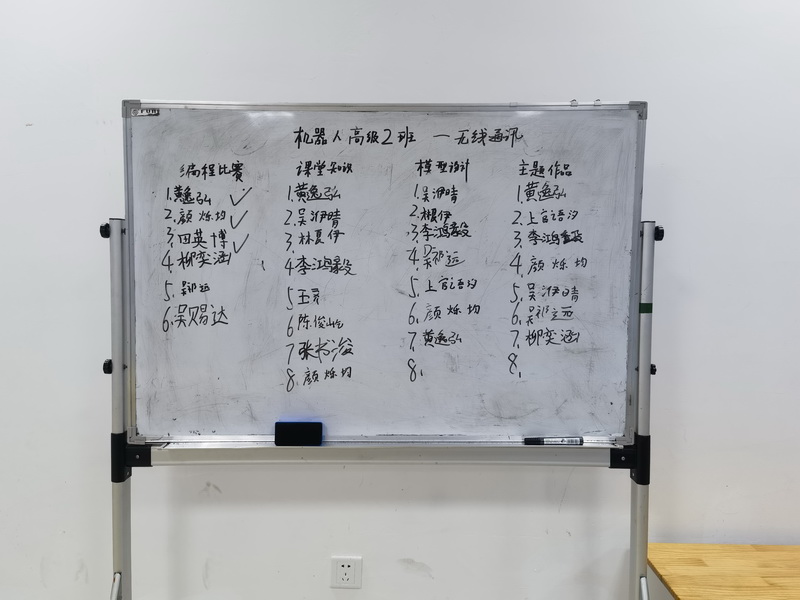 机器人高级2班 — 无线通讯
编程比赛
1.黄逸弘 ✓
2.颜烁均 ✓
3.田英博 ✓
4.柳奕涵
5.吴祁远
6.吴赐达
课堂知识
1.黄逸弘
2.吴洢晴
3.林夏伊
4.李鸿毅
5.王
6.陈俊屹
7.张书浚
8.颜烁均
模型设计
1.吴洢晴
2.伊
3.李鸿毅
4.吴祁远
5.上官语汐
6.颜烁均
7.黄逸弘
8.
主题作品
1.黄逸弘
2.上官语汐
3.李鸿毅
4.颜烁均
5.吴洢晴
6.吴祁远
7.柳奕涵
8.